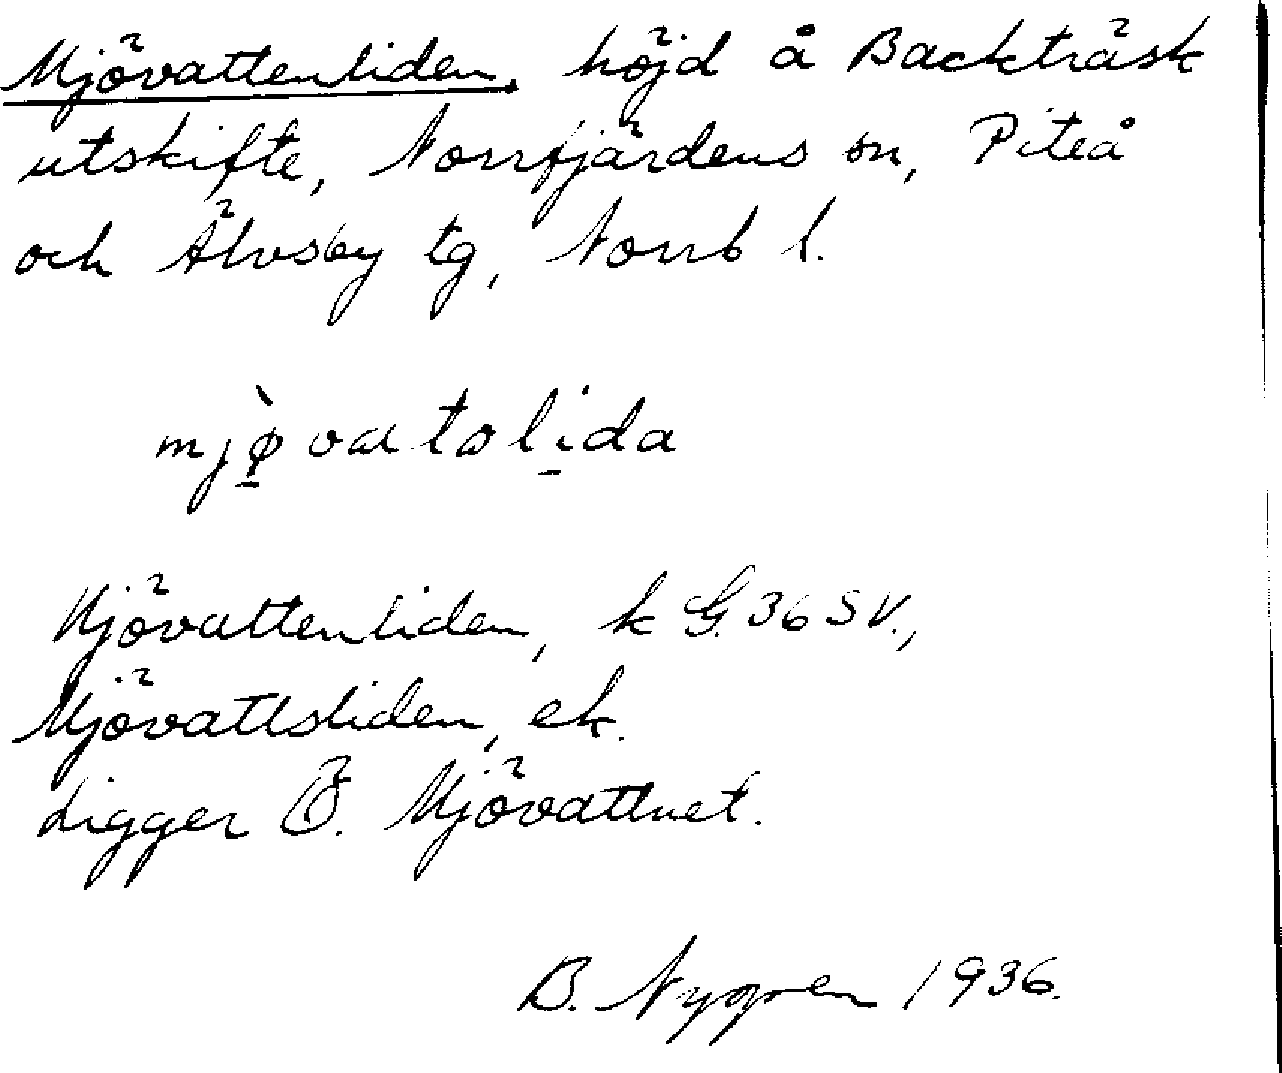 Mjövattenliden, höjd å Backträsk
utskifte, Norrfjärdens sn, Piteå
och Älvsby tg, Norrb l.
mjø̀vatəlida
Mjövattenliden, k G. 36 SV.,
Mjövattsliden, ek.
Ligger Ö. Mjövattnet.
B. Nygren 1936.